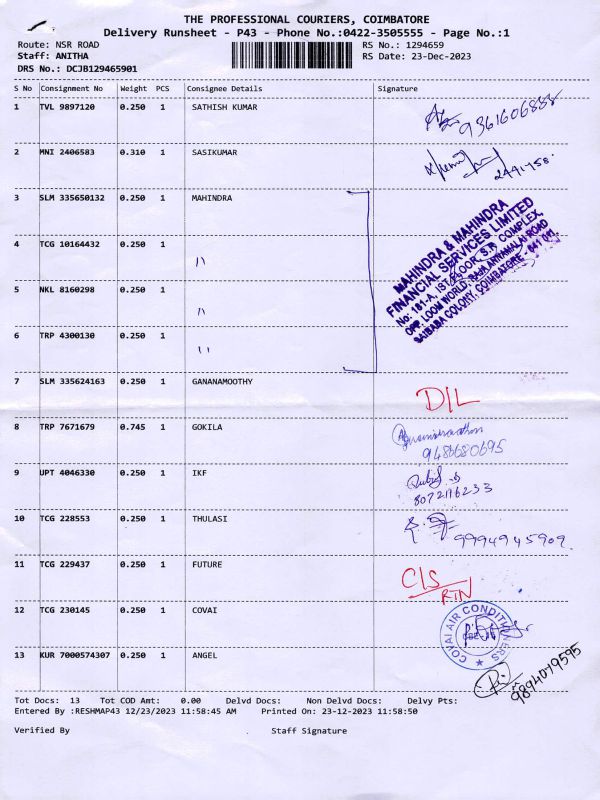 THE PROFESSIONAL COURIERS, COIMBATORE
Delivery Runsheet - P43 - Phone No.:0422-3505555 - Page No.:1
Route: NSR ROAD RS No.: 1294659
Staff: ANITHA RS Date: 23-Dec-2023
DRS No.: DCJB129465901
S No Consignment No Weight PCS Consignee Details Signature
1 TVL 9897120 0.250 1 SATHISH KUMAR
9361606888
2 MNI 2406583 0.310 1 SASIKUMAR
3 SLM 335650132 0.250 1 MAHINDRA
MAHINDRA & MAHINDRA
FINANCIAL SERVICES LIMITED
No: 181-A, IST FLOOR, S.R. COMPLEX,
OPP. LOOM WORLD, RAJA ANNAMALAI ROAD
SAIBABA COLONY, COIMBATORE - 641 011.
4 TCG 10164432 0.250 1 ''
5 NKL 8160298 0.250 1 ''
6 TRP 4300130 0.250 1 ''
7 SLM 335624163 0.250 1 GANANAMOOTHY D/L
8 TRP 7671679 0.745 1 GOKILA
9486680695
9 UPT 4046330 0.250 1 IKF
8072116233
10 TCG 228553 0.250 1 THULASI 9994945909
11 TCG 229437 0.250 1 FUTURE C/S
RTN
12 TCG 230145 0.250 1 COVAI
COVAI AIR CONDITIONERS
13 KUR 7000574307 0.250 1 ANGEL
9894079595
Tot Docs: 13 Tot COD Amt: 0.00 Delvd Docs: Non Delvd Docs: Delvy Pts:
Entered By :RESHMAP43 12/23/2023 11:58:45 AM Printed On: 23-12-2023 11:58:50
Verified By Staff Signature